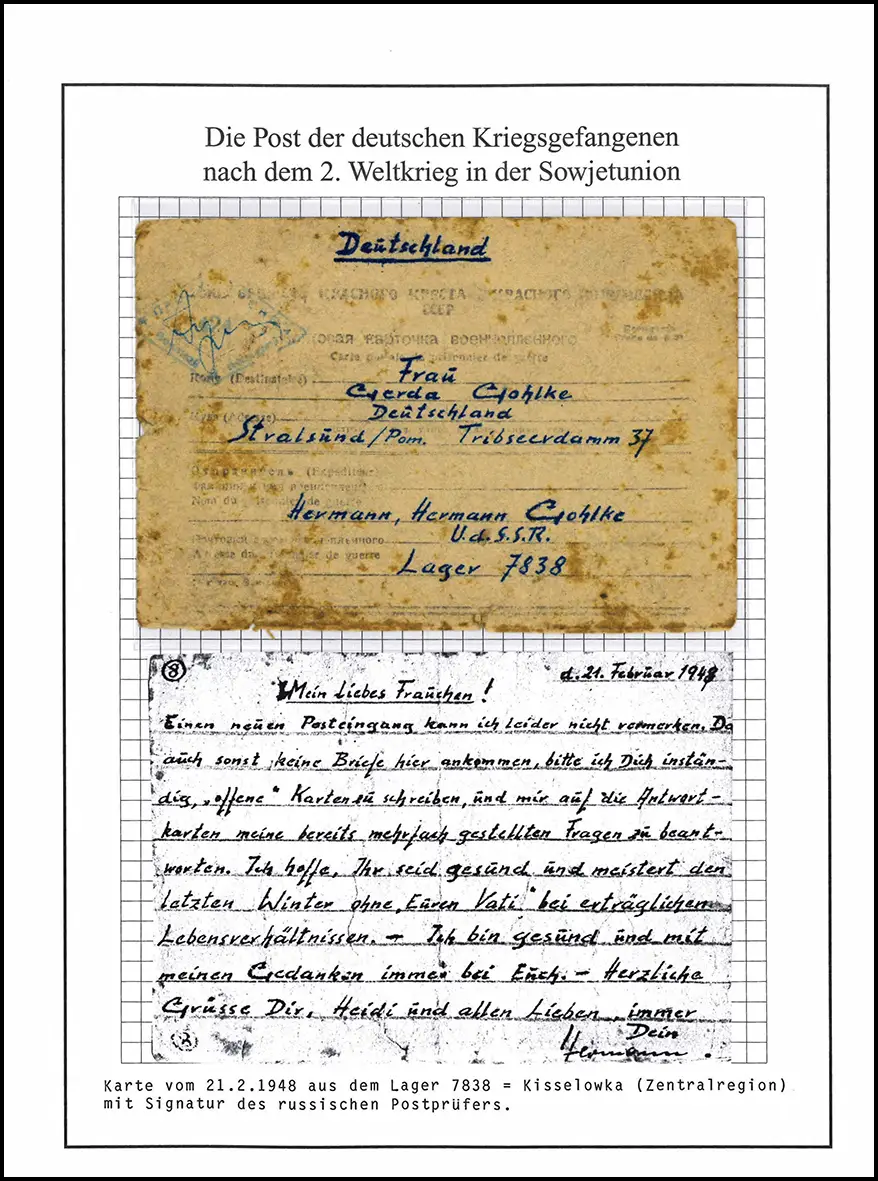 Die Post der deutschen Kriegsgefangenen
nach dem 2. Weltkrieg in der Sowjetunion
Deutschland
КРАСНОГО КРЕСТА КРАСНОГО
СССР
карточка военнопленного
Carte de prisonnier de guerre
Frau
Кому (Destinataire)
Gerda Gohlke
Deutschland
Stralsund/Pom. Tribseerdamm 37
(Expéditeur)
Nom du de guerre
Hermann, Hermann Gohlke
U.d.S.S.R.
de guerre
Lager 7838
8
d. 21. Februar 1948
Mein liebes Frauchen!
Einen neuen Posteingang kann ich leider nicht vermerken. Da
auch sonst keine Briefe hier ankommen, bitte ich Dich instän-
dig, „offene“ Karten zu schreiben, und mir auf die Antwort-
karten meine bereits mehrfach gestellten Fragen zu beant-
worten. Ich hoffe, Ihr seid gesund und meistert den
letzten Winter ohne „Euren Vati“ bei erträglichen
Lebensverhältnissen. – Ich bin gesund und mit
meinen Gedanken immer bei Euch. – Herzliche
Grüsse Dir, Heidi und allen Lieben, immer
Dein
Hermann.
Karte vom 21.2.1948 aus dem Lager 7838 = Kisselowka (Zentralregion)
mit Signatur des russischen Postprüfers.